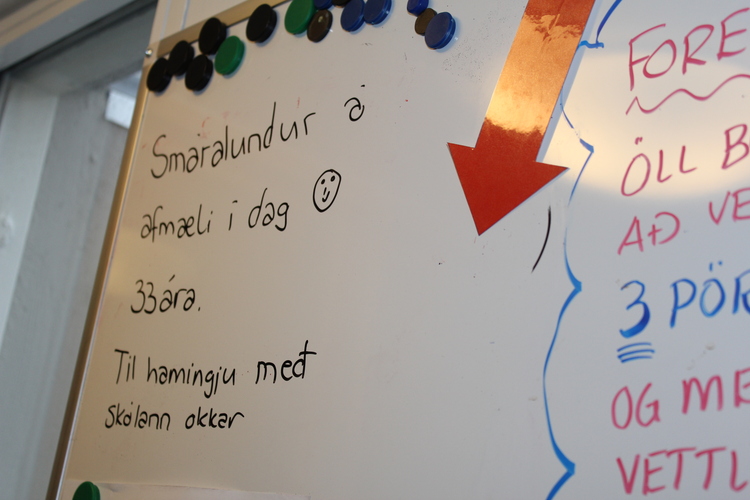 Smáralundur á
afmæli í dag
33 ára.
Til hamingju með
skólann okkar
FORE
ÖLL B
AÐ VE
3 PÖR
OG ME
VETTL